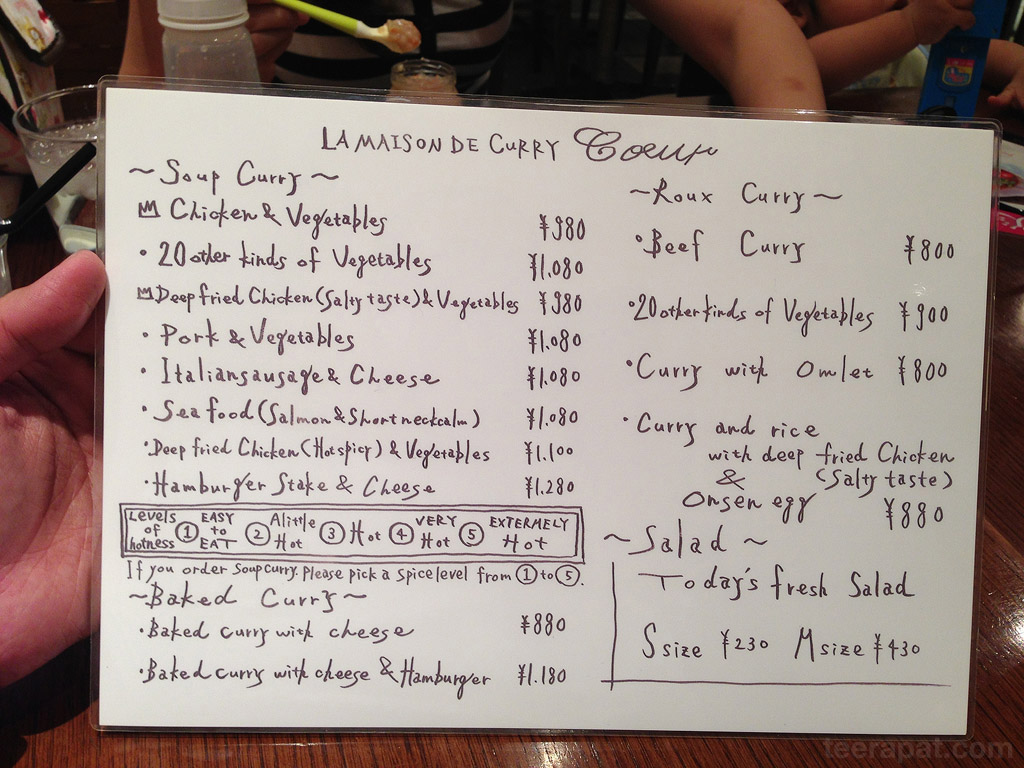 LA MAISON DE CURRY Coeur
~Soup Curry~
Chicken & Vegetables ¥980
・20 other kinds of Vegetables ¥1.080
Deep fried Chicken (Salty taste) & Vegetables ¥980
・Pork & Vegetables ¥1.080
・Italian sausage & Cheese ¥1.080
・Sea food (Salmon & Short neck calm) ¥1.080
・Deep fried Chicken (Hot spicy) & Vegetables ¥1.100
・Hamburger Stake & Cheese ¥1.280
Levels of hotness ① EASY to EAT ② Alittle Hot ③ Hot ④ VERY Hot ⑤ EXTERMELY Hot
If you order Soup curry. Please pick a spice level from ① to ⑤.
~Baked Curry~
・Baked curry with cheese ¥880
・Baked curry with cheese & Hamburger ¥1.180
~Roux Curry~
・Beef Curry ¥800
・20 other kinds of Vegetables ¥900
・Curry with Omlet ¥800
・Curry and rice
with deep fried Chicken
& (Salty taste)
Onsen egg ¥880
~Salad~
Today's fresh Salad
S size ¥230 M size ¥430
teerapat.com